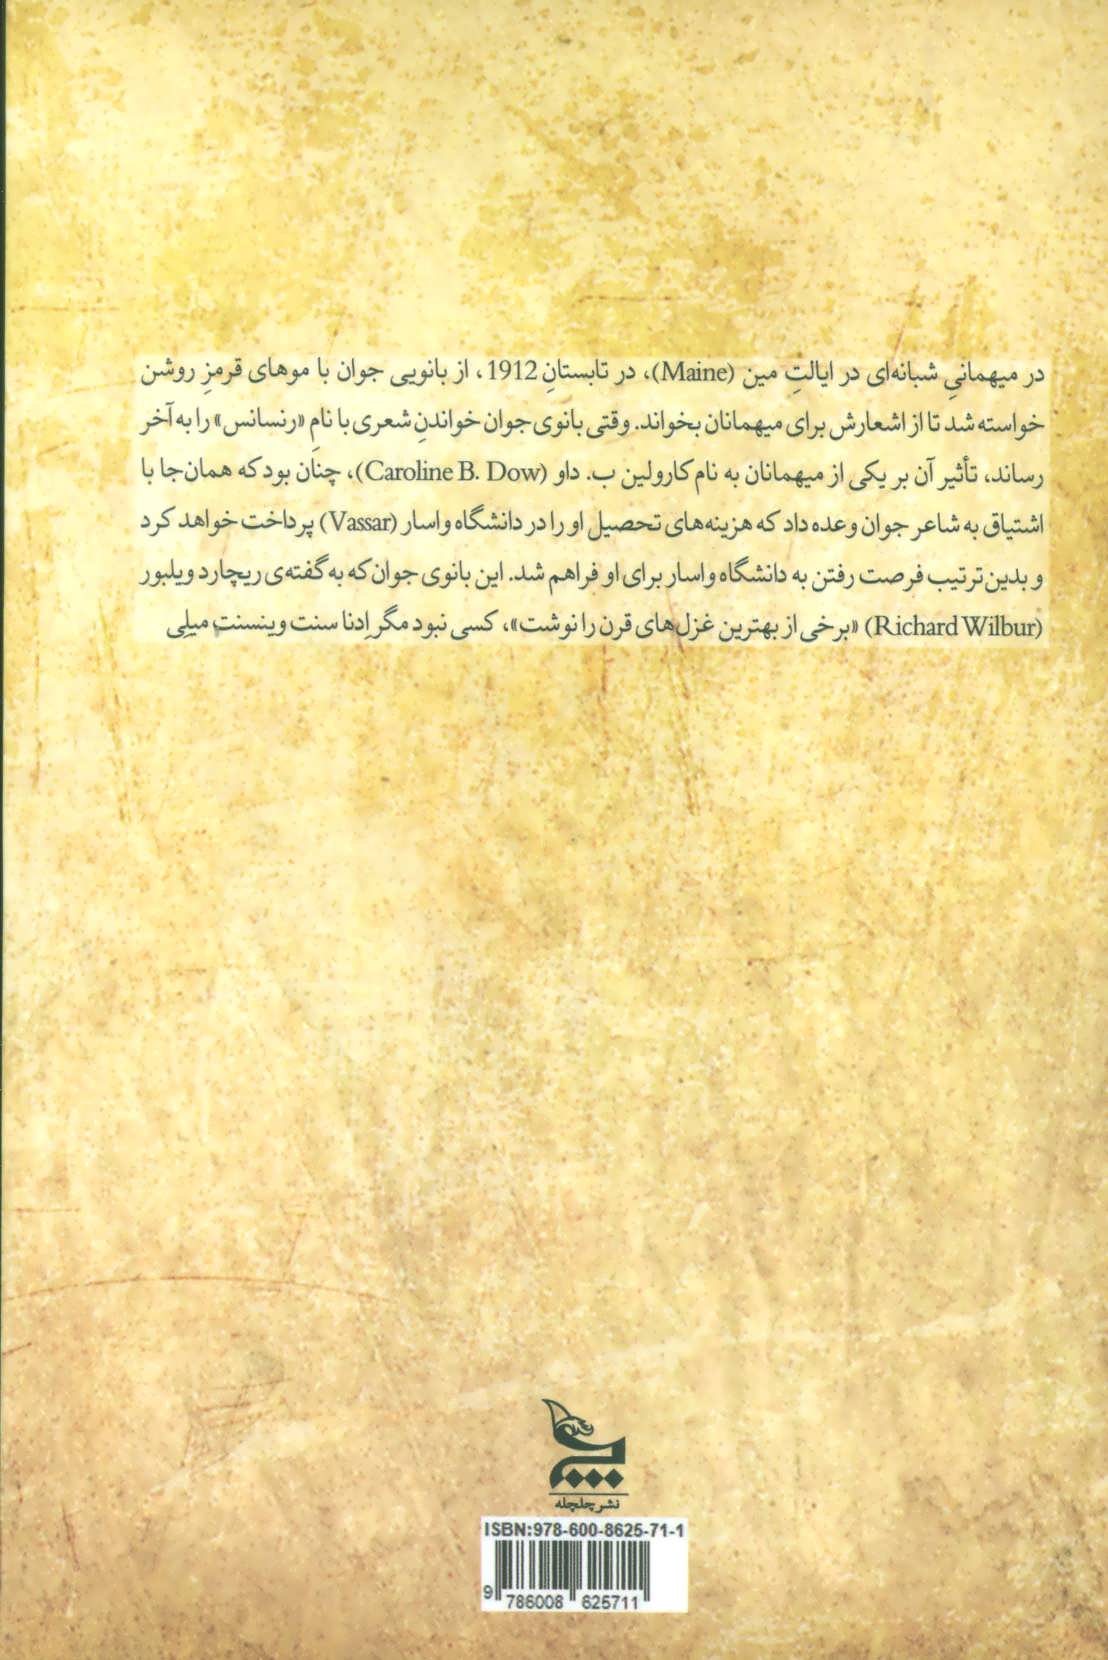 در میهمانیِ شبانه‌ای در ایالتِ مین (Maine)، در تابستانِ 1912، از بانویی جوان با موهای قرمزِ روشن
خواسته شد تا از اشعارش برای میهمانان بخواند. وقتی بانوی جوان خواندنِ شعری با نامِ «رنسانس» را به آخر
رساند، تأثیر آن بر یکی از میهمانان به نام کارولین ب. داو (Caroline B. Dow)، چنان بود که همان‌جا با
اشتیاق به شاعر جوان وعده داد که هزینه‌های تحصیل او را در دانشگاه واسار (Vassar) پرداخت خواهد کرد
و بدین‌ترتیب فرصت رفتن به دانشگاه واسار برای او فراهم شد. این بانوی جوان که به گفته‌ی ریچارد ویلبور
(Richard Wilbur) «برخی از بهترین غزل‌های قرن را نوشت»، کسی نبود مگر اِدنا سنت وینسنتِ میلِی
نشر چلچله
ISBN:978-600-8625-71-1
9 786008 625711